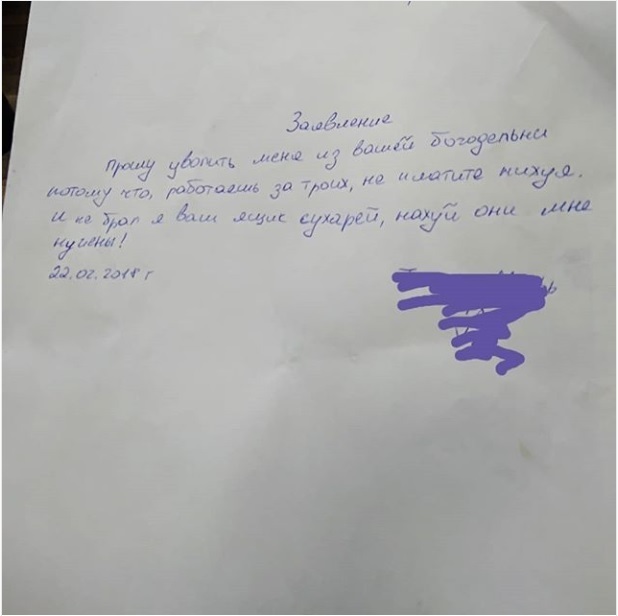 Заявление
Прошу уволить меня из вашей богодельни
потому что, работаешь за троих, не платите нихуя.
И не брал я ваш ящик сухарей, нахуй они мне
нужены!
22.02.2018 г